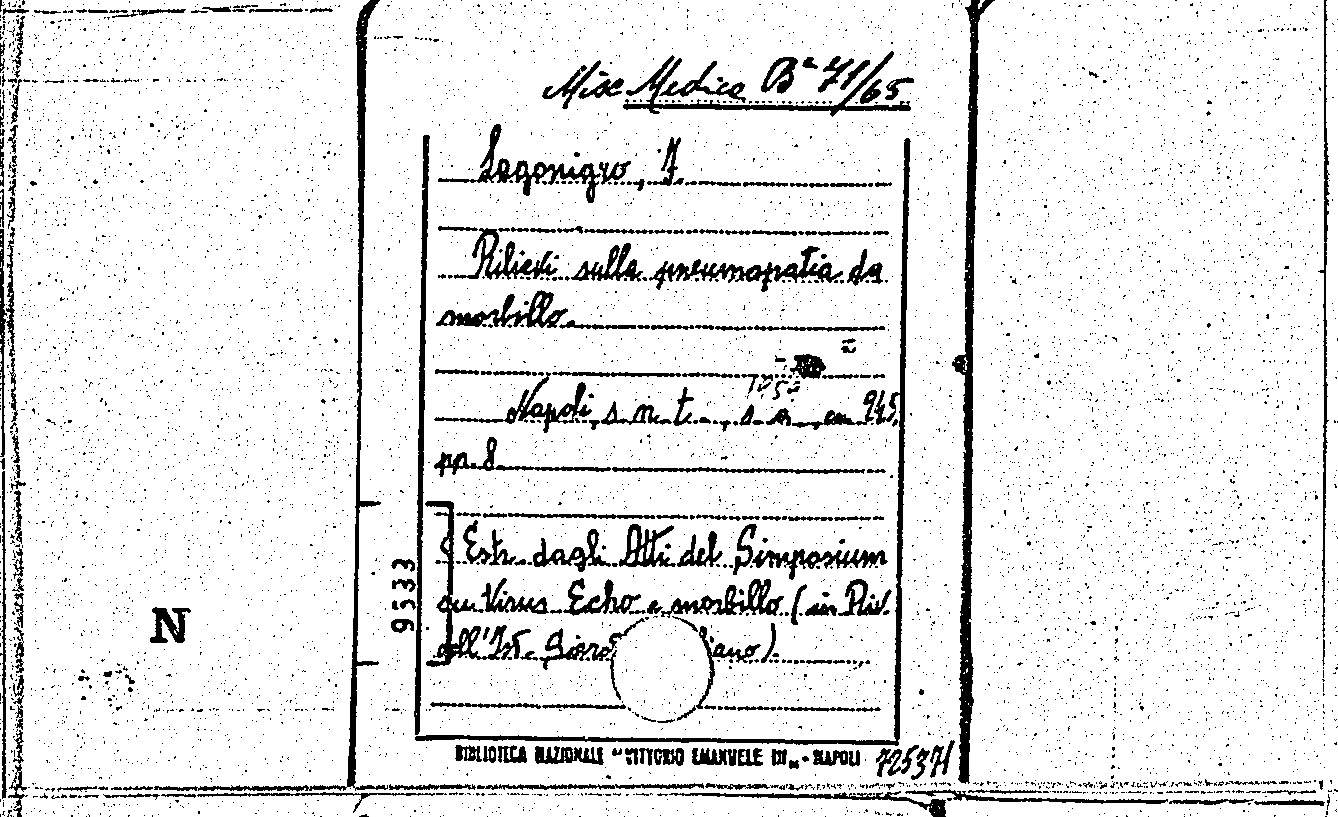 Misc Medica Bª 71/65
Lagonigro, F.
Rilievi sulla pneumopatia da
morbillo.
195
Napoli, s. n. t., s. a., cm 24,5
pp. 8
(Estr. dagli Atti del Simposium
su Virus Echo e morbillo (in Riv.
dell'Ist. iano).
9533
N
BIBLIOTECA NAZIONALE "VITTORIO EMANUELE III" - NAPOLI 725371